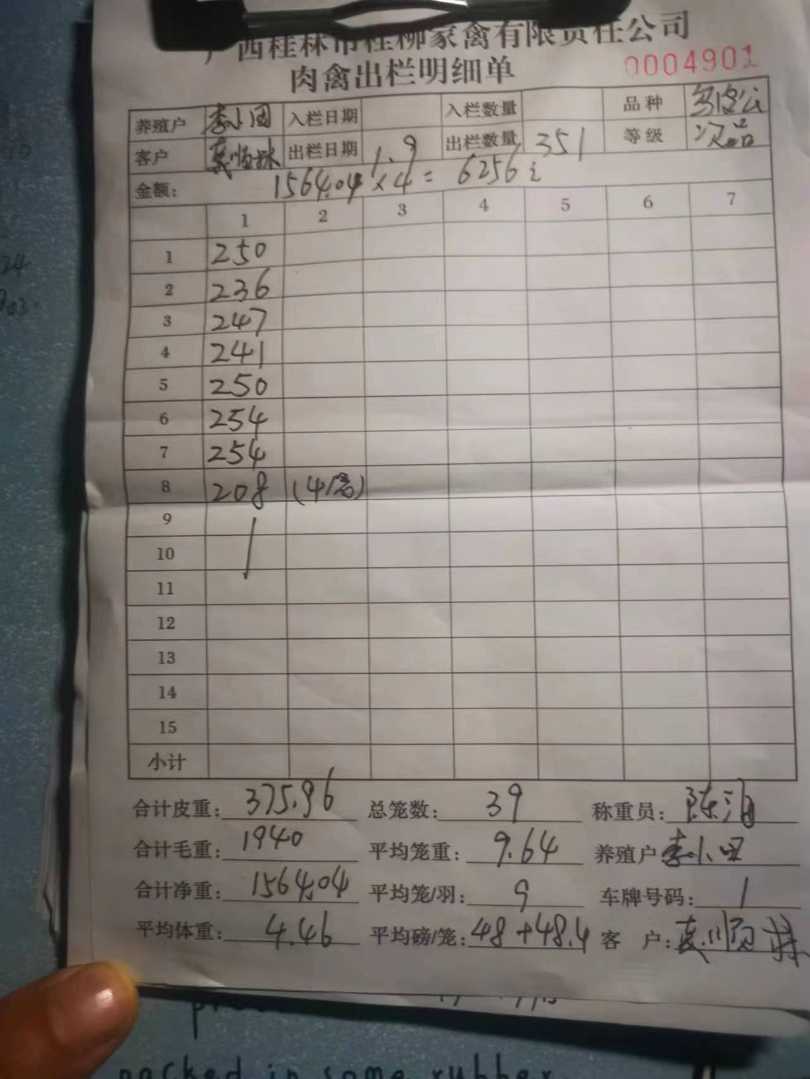 广西桂林市桂柳家禽有限责任公司
肉禽出栏明细单 0004901
养殖户 李小团 入栏日期 入栏数量 品种
客户 莫顺林 出栏日期 1.9 出栏数量 351 等级 次品
金额: 1564.04 × 4 = 6256
1 2 3 4 5 6 7
1 250
2 236
3 247
4 241
5 250
6 254
7 254
8 208 (4/笼)
9
10
11
12
13
14
15
小计
合计皮重: 375.96 总笼数: 39 称重员: 陈
合计毛重: 1940 平均笼重: 9.64 养殖户 李小
合计净重: 1564.04 平均笼/羽: 9 车牌号码: /
平均体重: 4.46 平均磅/笼: 48+48.4 客 户: 莫顺林
packed in some rubber